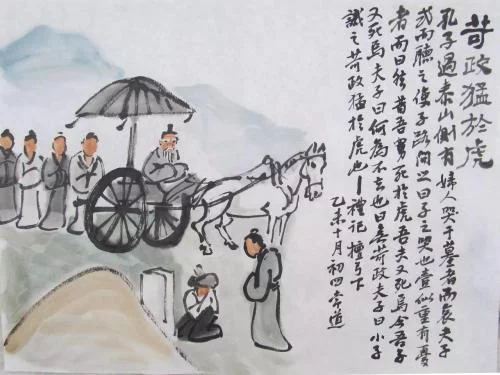 苛政猛於虎
孔子過泰山側有婦人哭于墓者而哀夫子
式而聽之使子路問之曰子之哭也壹似重有憂
者而曰然昔吾舅死於虎吾夫又死焉今吾子
又死焉夫子曰何為不去也曰無苛政夫子曰小子
識之苛政猛於虎也—禮記檀弓下
乙未十月初四